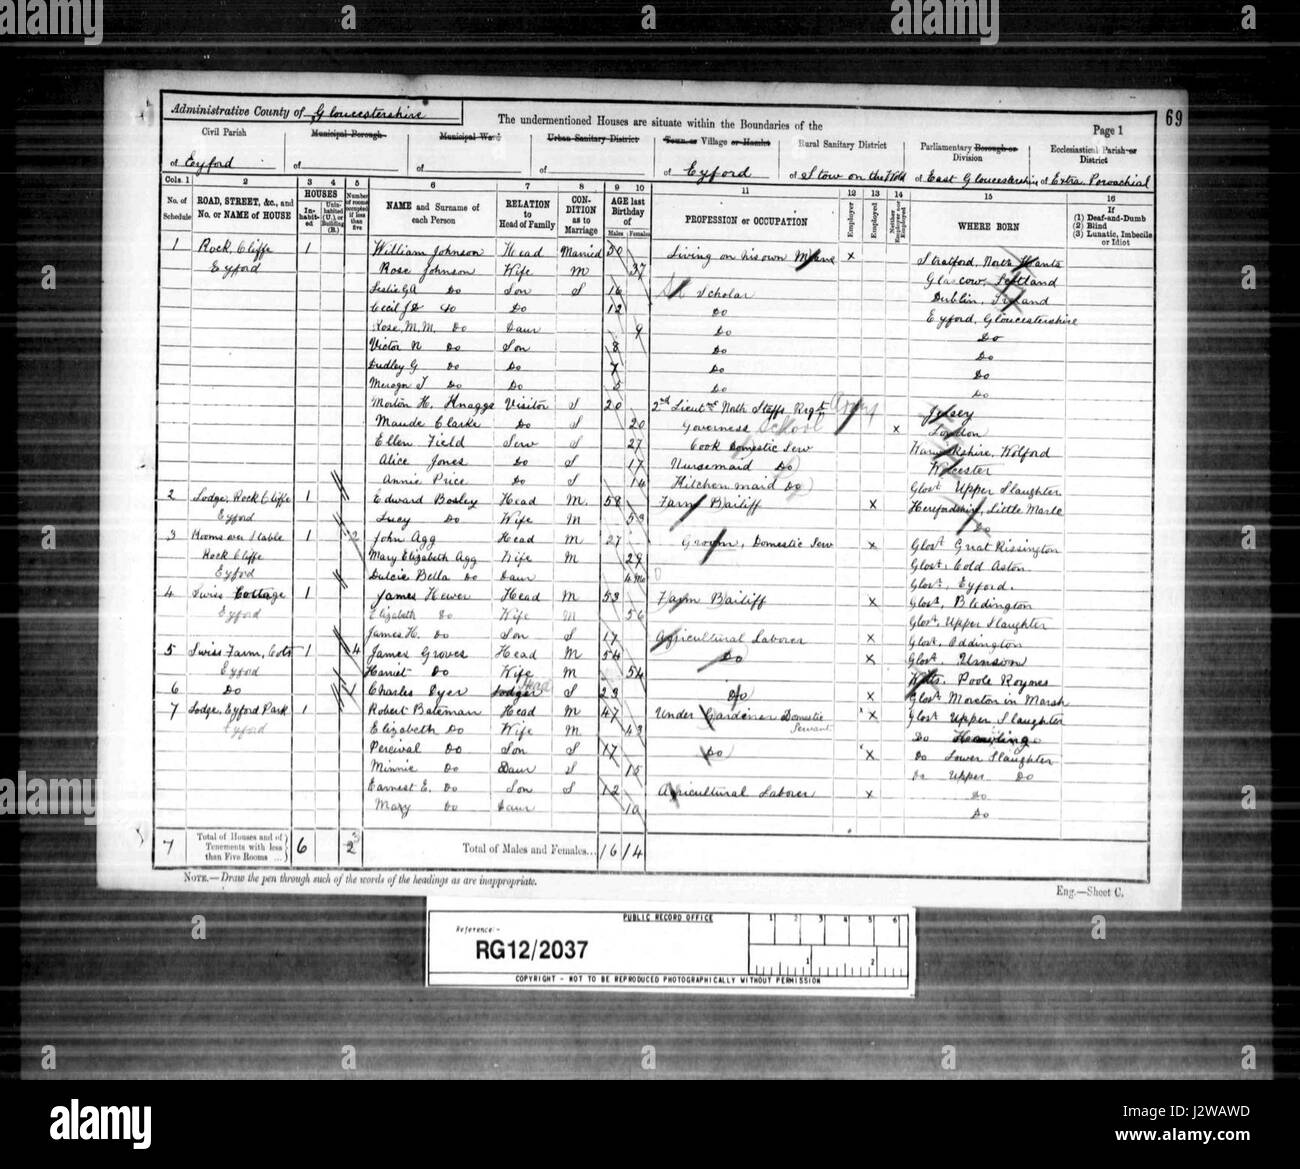 alamy
69
Administrative County of Gloucestershire
The undermentioned Houses are situate within the Boundaries of the
Page 1
Civil Parish of Eyford
Municipal Borough of
Municipal Ward of
Urban Sanitary District of
Town or Village or Hamlet of Eyford
Rural Sanitary District of Stow on the Wold
Parliamentary Borough or Division of East Gloucestershire
Ecclesiastical Parish or District of Extra Parochial
Cols. 1 2 3 4 5 6 7 8 9 10 11 12 13 14 15 16
No. of Schedule
ROAD, STREET, &c., and No. or NAME of HOUSE
HOUSES
Inhabited
Uninhabited (U.), or Building (B.)
Number of rooms occupied if less than five
NAME and Surname of each Person
RELATION to Head of Family
CONDITION as to Marriage
AGE last Birthday of
Males Females
PROFESSION or OCCUPATION
Employer
Employed
Neither Employer nor Employed
WHERE BORN
If (1) Deaf-and-Dumb (2) Blind (3) Lunatic, Imbecile or Idiot
1 Rock Cliffe 1 William Johnson Head Married 50 Living on his own Means x Stratford, North Hants
Eyford Rose Johnson Wife M 37 Glascow, Scotland
Leslie G A Do Son S 16 Scholar Dublin, Ireland
Cecil J D Do Do 12 Do Eyford, Gloucestershire
Rose, M. M. Do Daur 9 Do Do
Victor N Do Son 8 Do Do
Dudley G Do Do 7 Do Do
Do Do 5 Do Do
Morton H. Knaggs Visitor S 20 2nd Lieutnt North Staffs Regt Army Jersey
Maude Clarke Do S 20 Governess School x London
Ellen Field Serv S 27 Cook Domestic Serv Warwickshire, Wolford
Alice Jones Do S 17 Nursemaid Do Worcester
Annie Price Do S 14 Kitchen maid Do Glos. Upper Slaughter
2 Lodge, Rock Cliffe 1 Edward Bosley Head M. 58 Farm Bailiff x Herefordshire, Little Marle
Eyford Lucy Do Wife M 53 Do
3 Rooms over Stable 1 2 John Agg Head M 27 Groom, Domestic Serv x Glos. Great Rissington
Rock Cliffe Mary Elizabeth Agg Wife M 29 Glos. Cold Aston
Eyford Dulcie Bella Do Daur 4 Mo Glos. Eyford.
4 Swiss Cottage 1 James Hewer Head M 53 Farm Bailiff x Glos. Bledington
Eyford Elizabeth Do Wife M 56 Glos. Upper Slaughter
James H. Do Son S 17 Agricultural Laborer x Glos. Oddington
5 Swiss Farm, Cots 1 4 James Groves Head M 54 Do x Glos.
Eyford Harriet Do Wife M 54 Wilts. Poole Keynes
6 Do 1 Charles Dyer Lodger Head S 23 Do x Glos. Moreton in Marsh
7 Lodge, Eyford Park 1 Robert Bateman Head M 47 Under Gardener Domestic Servant x Glos. Upper Slaughter
Eyford Elizabeth Do Wife M 43 Do Hawling
Percival Do Son S 17 Do x Do Lower Slaughter
Minnie Do Daur S 15 Do Upper Do
Earnest E. Do Son S 12 Agricultural Laborer x Do
Mary Do Daur 10 Do
7 Total of Houses and of Tenements with less than Five Rooms ... 6 3 2 Total of Males and Females... 16 14
NOTE.—Draw the pen through such of the words of the headings as are inappropriate.
Eng.—Sheet C.
PUBLIC RECORD OFFICE
Reference:-
RG12/2037
1 2 3 4 5 6
1 2
COPYRIGHT - NOT TO BE REPRODUCED PHOTOGRAPHICALLY WITHOUT PERMISSION
alamy
Image ID: J2WAWD
www.alamy.com